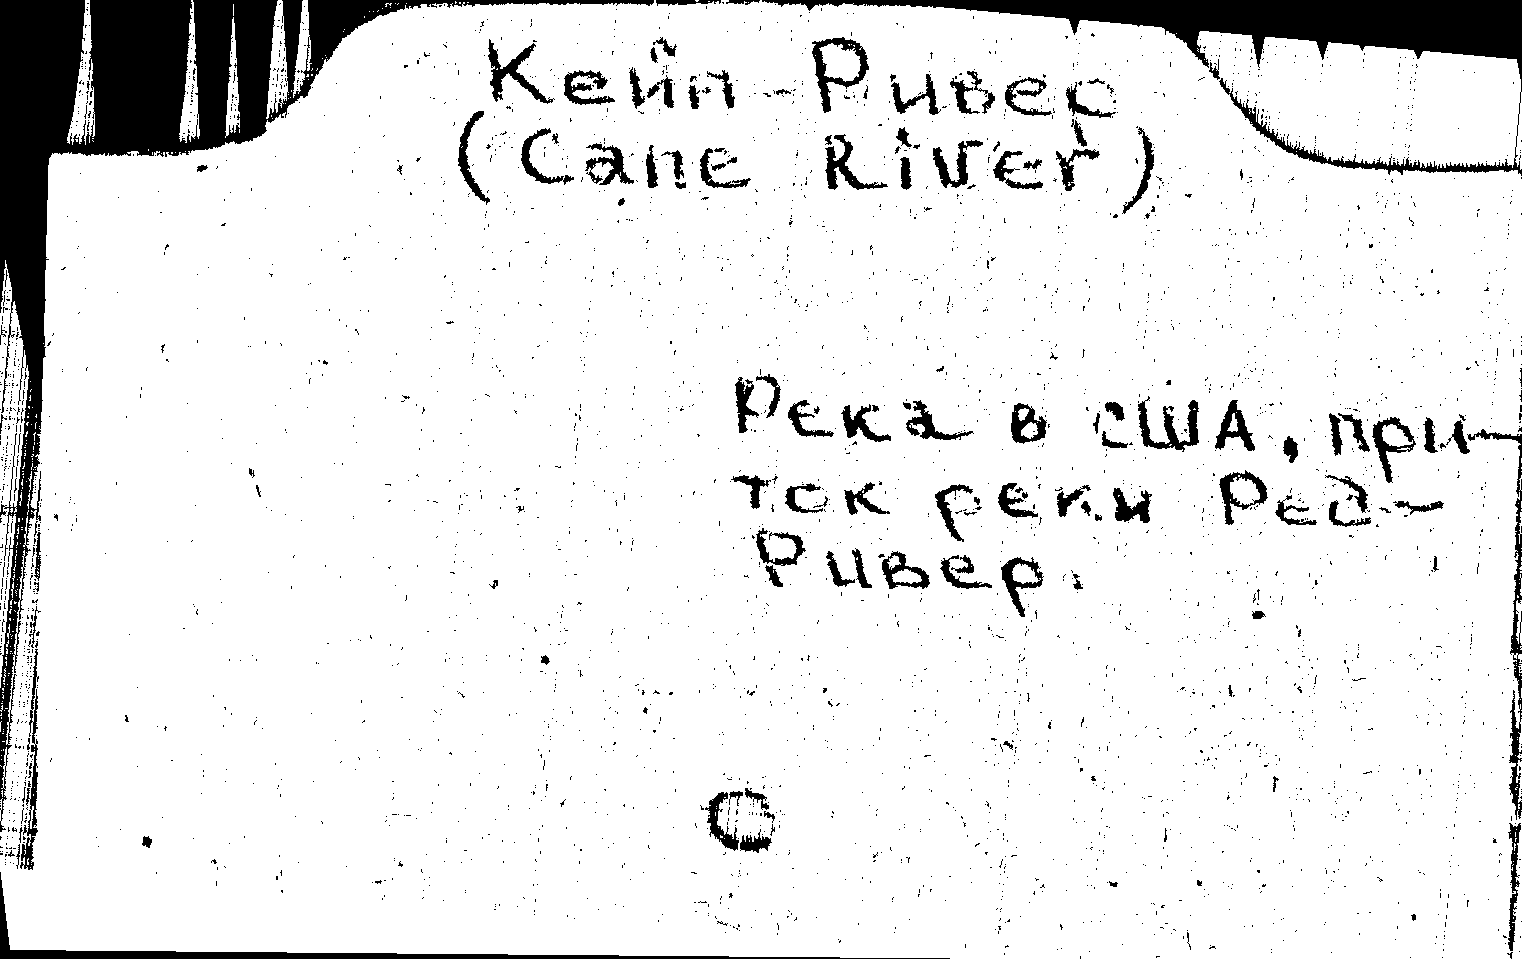 Кейн-Ривер
(Cane River)
Река в США, при-
ток реки Ред-
Ривер.